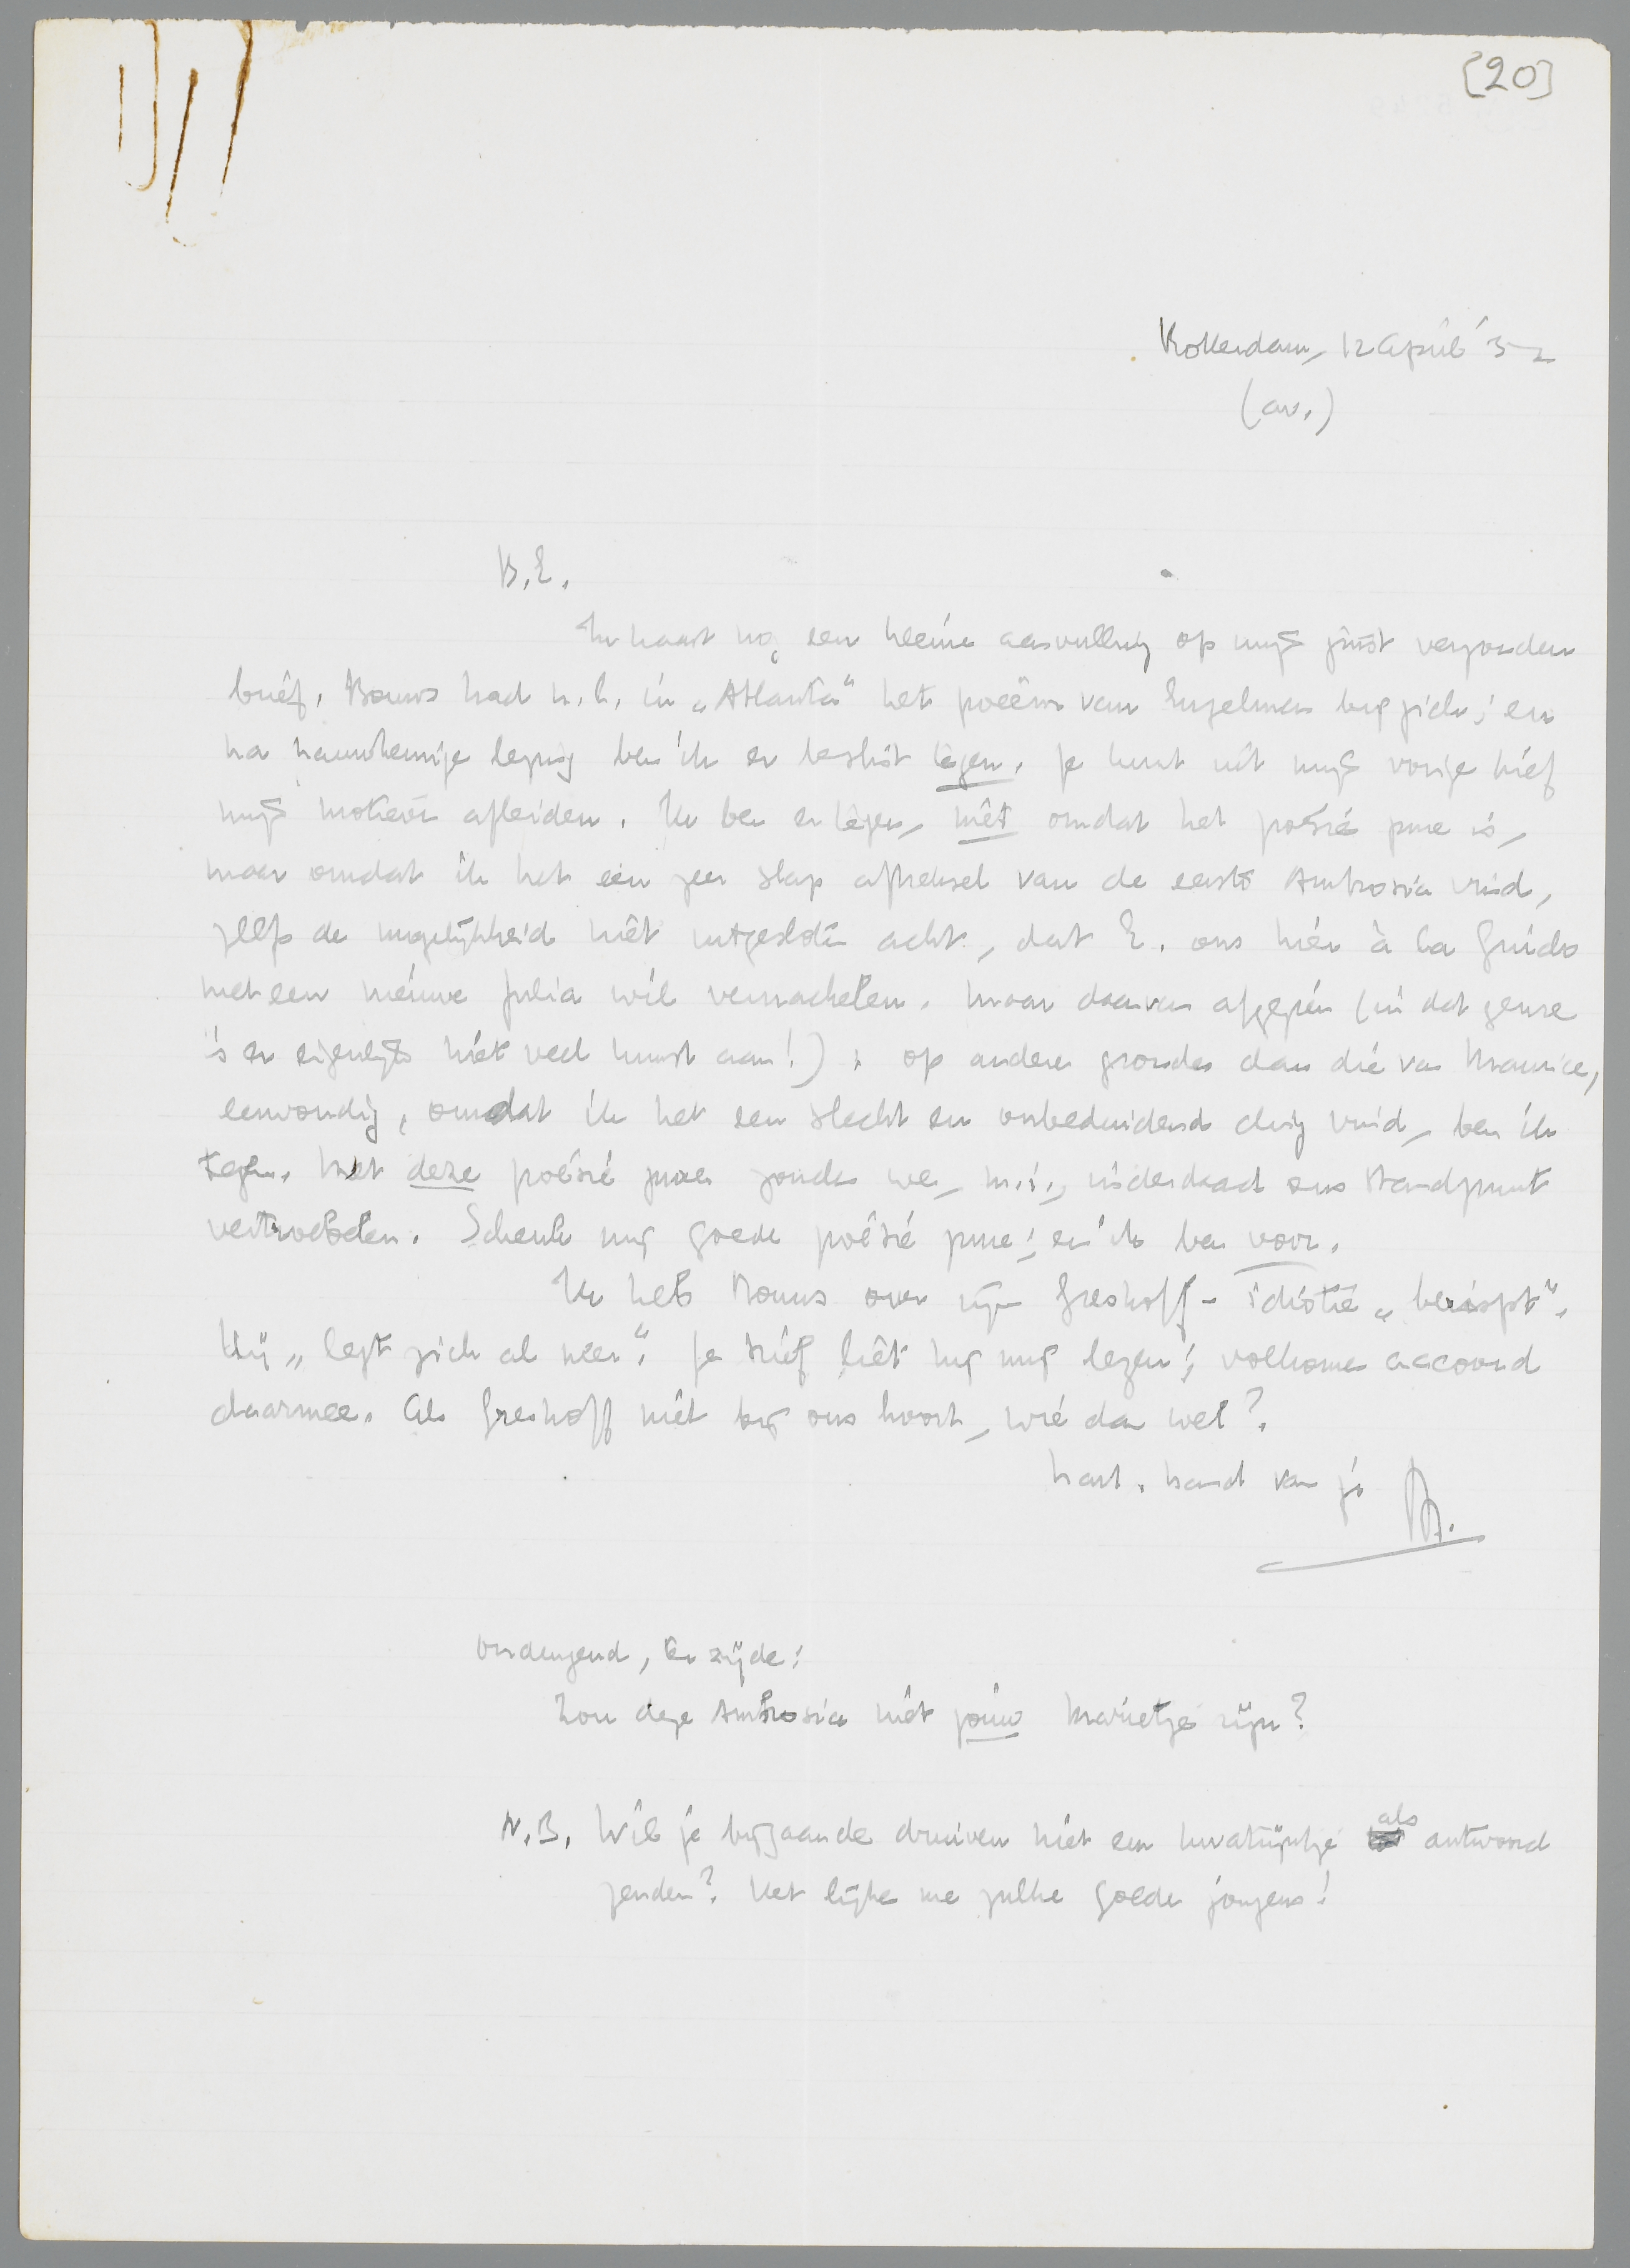 [20]
Rotterdam, 12 April '32
(av.)
B.E.
In haast nog een kleine aanvulling op mijn juist verzonden
brief. Bouws had n.l. in „Atlanta" het poëem van Engelman bij zich; en
na nauwkeurige lezing ben ik er beslist tegen. Je kunt uit mijn vorige brief
mijn motieven afleiden. Ik ben er tegen, niet omdat het poésie pure is,
maar omdat ik het een zeer slap aftreksel van de eerste Ambrosia vind,
zelfs de mogelijkheid niet uitgesloten acht, dat E. ons hier à la Guido
met een nieuwe Julia wil vernachelen. Maar daarvan afgezien (in dat genre
is er eigenlijk niet veel kunst aan!): op andere gronden dan die van Maurice,
eenvoudig, omdat ik het een slecht en onbeduidend ding vind, ben ik
tegen. Met deze poésie pure zouden we, m.i., inderdaad ons standpunt
vertroebelen. Schenk mij goede poésie pure; en ik ben voor.
Ik heb Bouws over zijn Greshoff-idiotie „berispt".
Hij „legt zich al neer". Je brief liet hij mij lezen; volkomen accoord
daarmee. Als Greshoff niet bij ons hoort, wie dan wel?
hart. hand van je
M.
Ondeugend, ter zijde:
Zou deze Ambrosia niet jouw Marietje zijn?
N.B. Wil je bijgaande druiven niet een kwatrijntje als antwoord
zenden? Het lijken me zulke goede jongens!